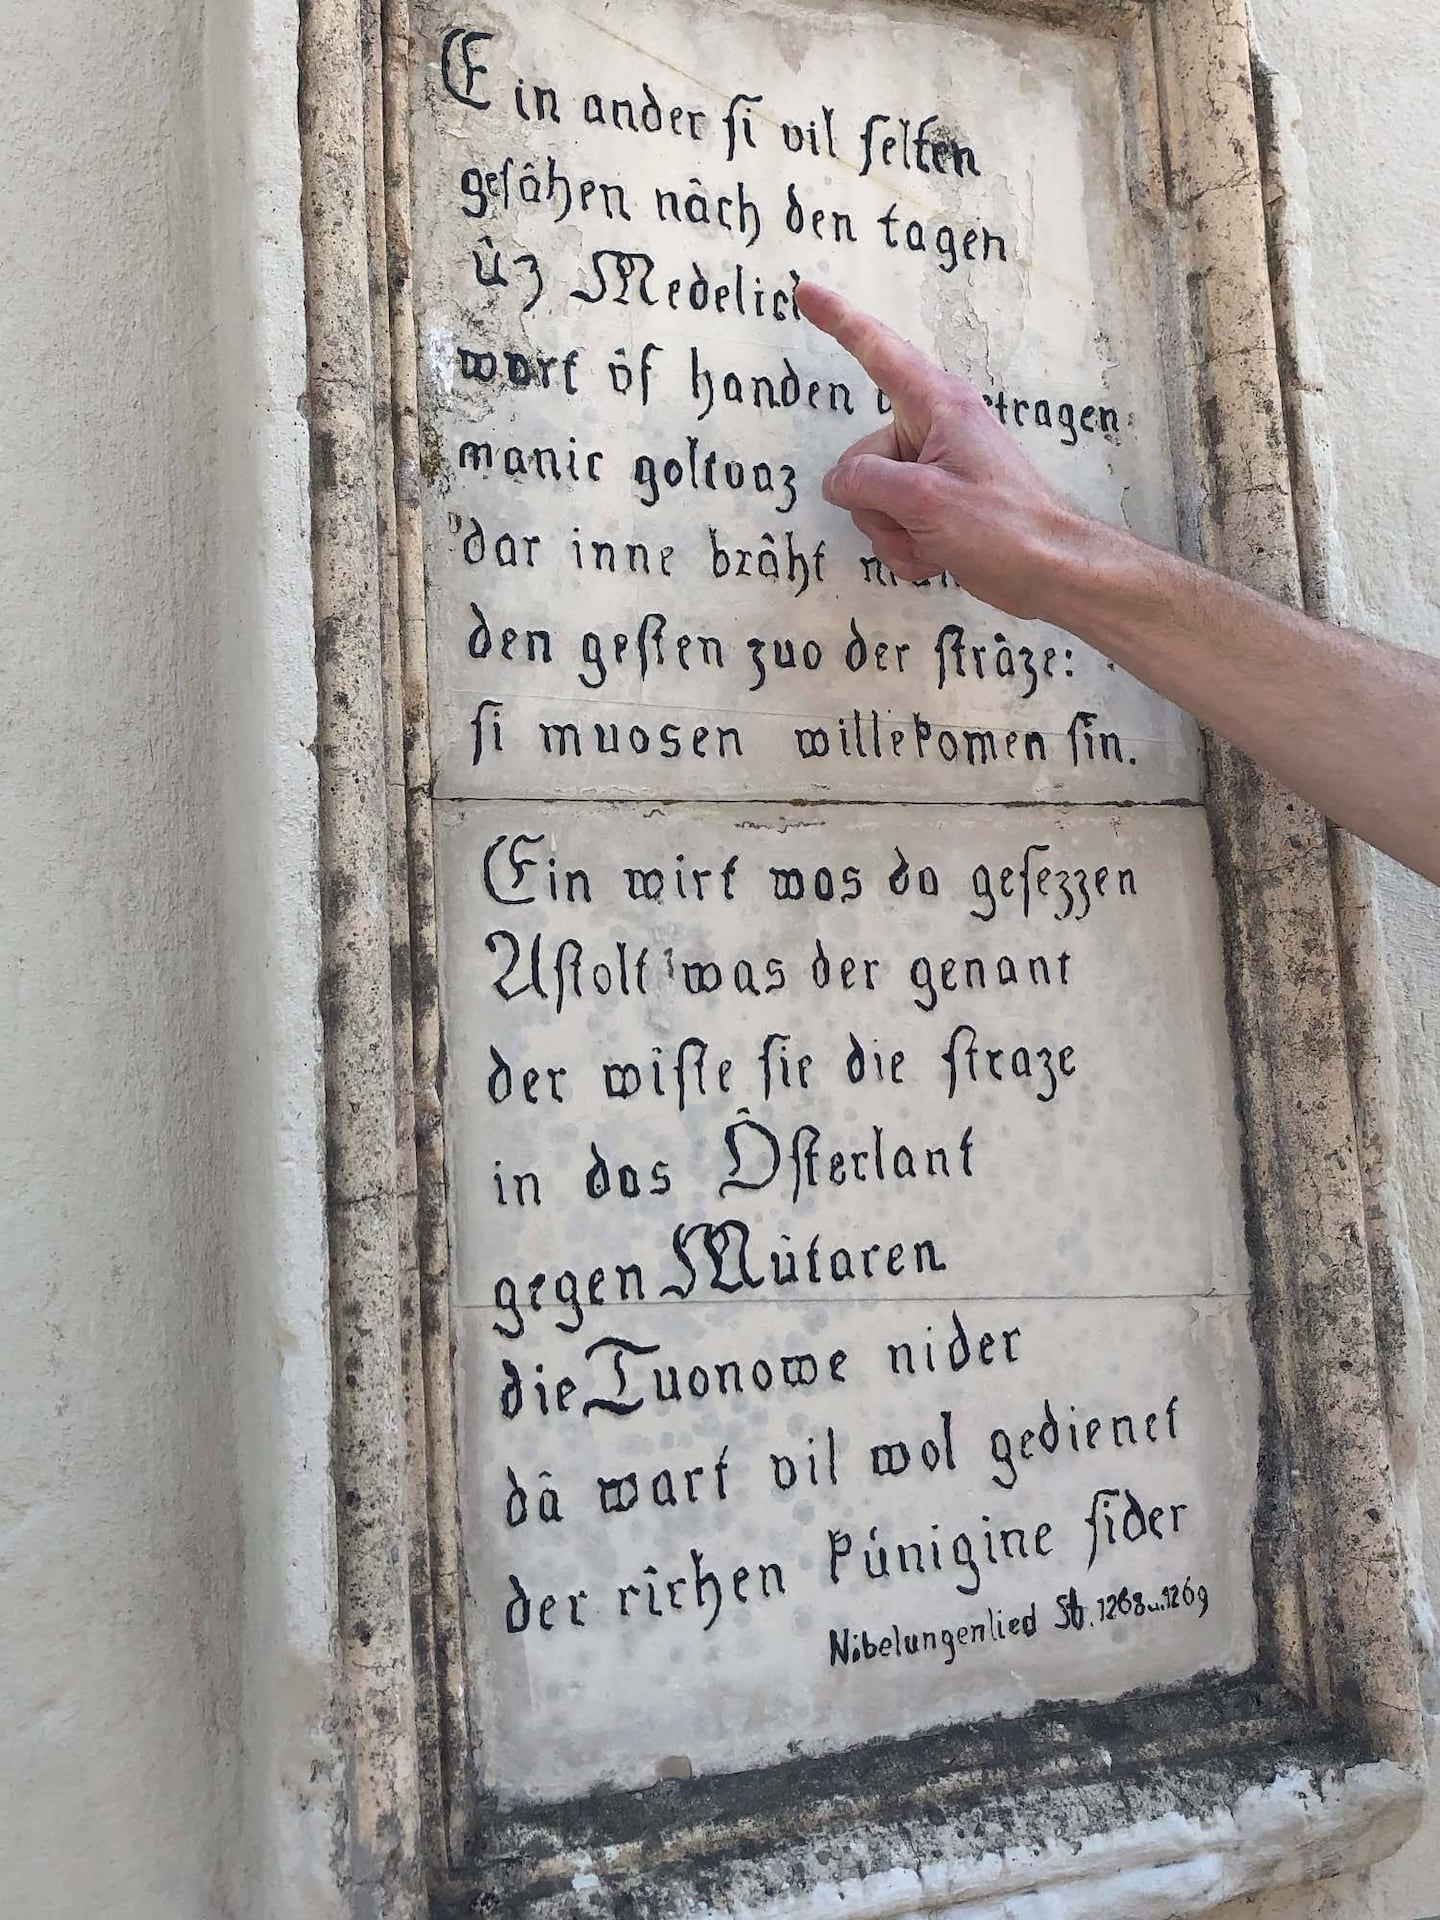 Ein ander si vil selten
gesâhen nâch den tagen
ûz Medelick
wart ûf handen
manic goltvaz
dar inne brâht
den gesten zuo der strâze:
si muosen willekomen sîn.
Ein wirt was da gesezzen
Astolt was der genant
der wiste sie die straze
in das Ôsterlant
gegen Mûtaren
die Tuonowe nider
dâ wart vil wol gedienet
der rîchen kúnigine sider
Nibelungenlied St. 1268 u. 1269